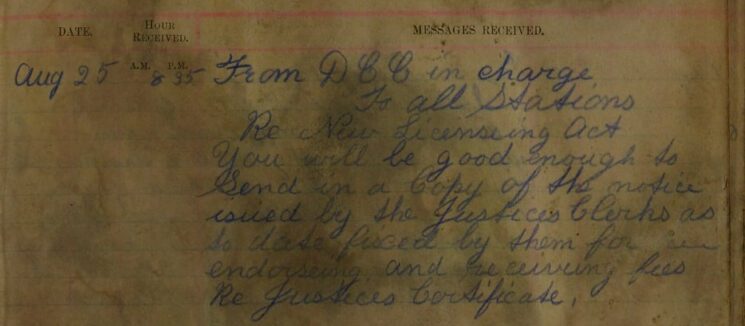 DATE. HOUR RECEIVED. MESSAGES RECEIVED.
Aug 25 A.M. P.M. 8 35 From D C C in charge
To all Stations
Re New Licenseing Act
You will be good enough to
Send in a Copy of the notice
issued by the Justices Clerks as
to date fixed by them for
endorseing and receiving fees
Re Justices Certificate,